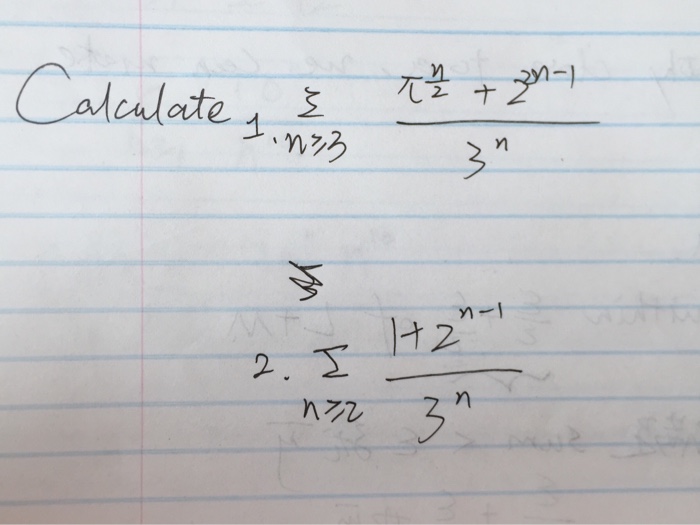 Calculate 1. Σ n≥3 (π^(n/2) + 2^(2n-1)) / 3^n
2. Σ n≥2 (1+2^(n-1)) / 3^n